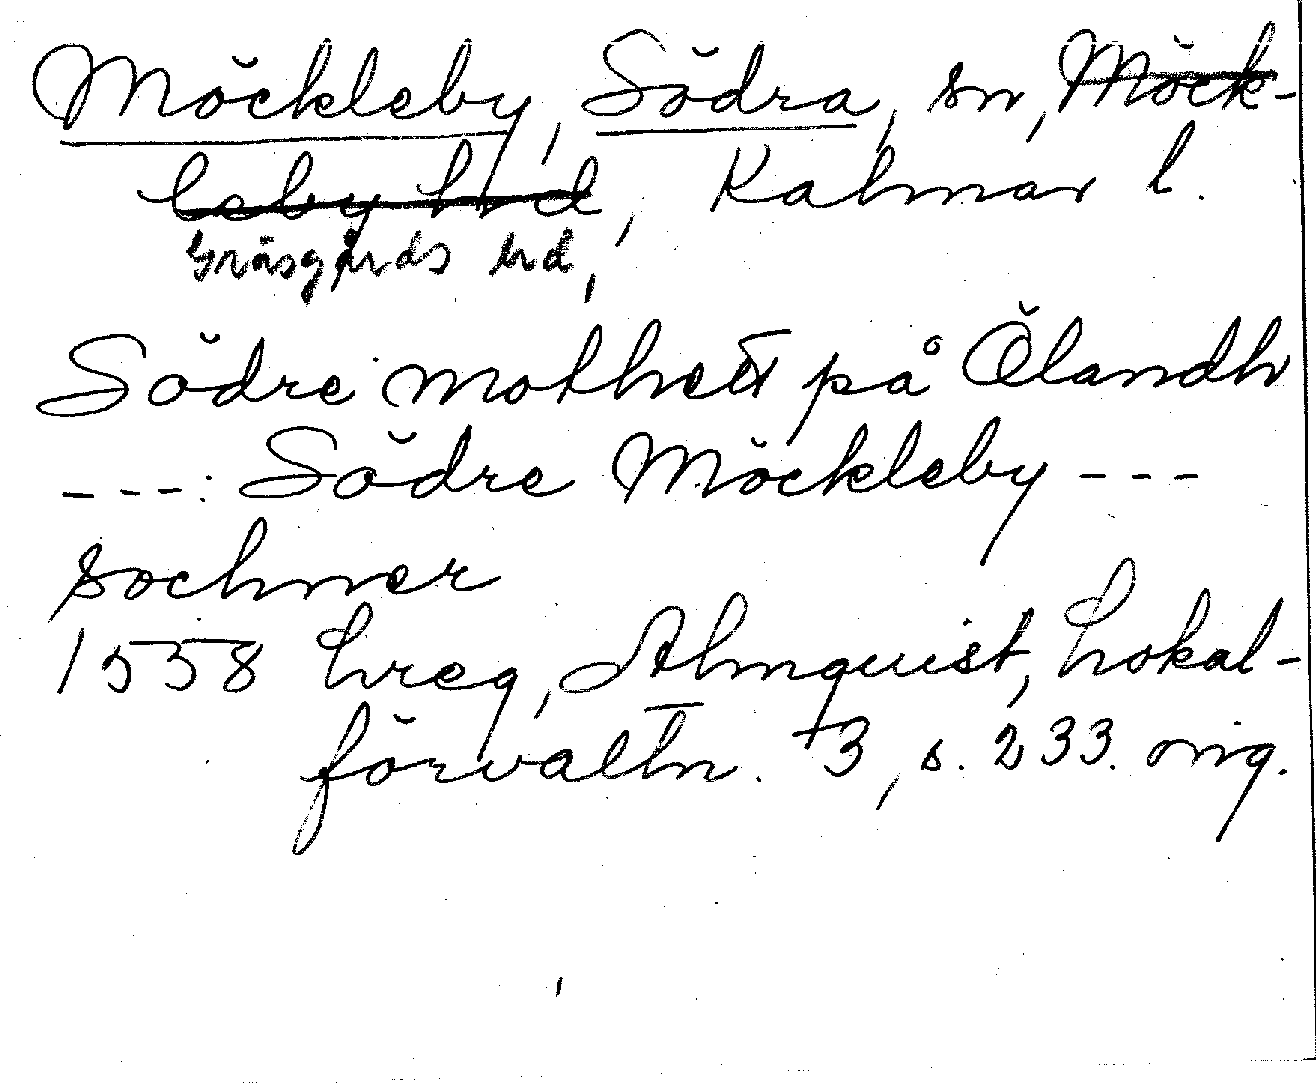 Möckleby, Södra, sn, Möck-
leby hrd, Kalmar l.
Gräsgårds hrd,
Södre mothett på Ölandh
---: Södre Möckleby ---
sochner
1558 hreg, Almquist, Lokal-
förvaltn. 3, s. 233. orig.